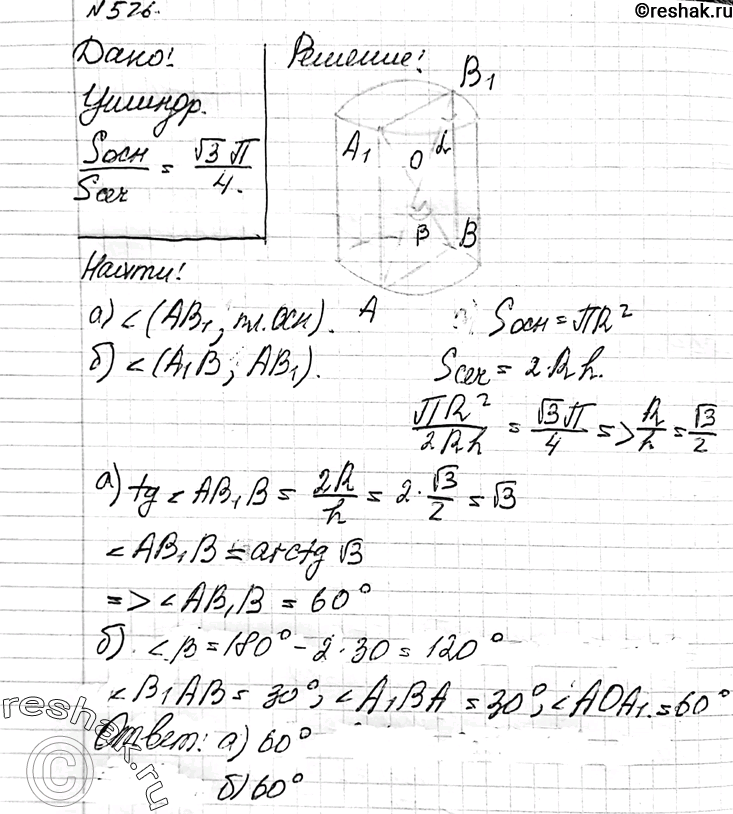 ©reshak.ru
№526.
Дано:
Решение:
Цилиндр.
Sосн/Sсеч = √3π/4.
B₁
A₁
O
α
β
B
A
Найти:
а) ∠(AB₁, пл.осн).
б) ∠(A₁B, AB₁).
Sосн = πR²
Sсеч = 2·Rh.
πR²/2Rh = √3π/4 => R/h = √3/2
а) tg∠AB₁B = 2R/h = 2·√3/2 = √3
∠AB₁B = arctg√3
=> ∠AB₁B = 60°
б). ∠β = 180° - 2·30 = 120°
∠B₁AB = 30°; ∠A₁BA = 30°; ∠AOA₁ = 60°
Ответ: а) 60°
б) 60°
reshak.ru